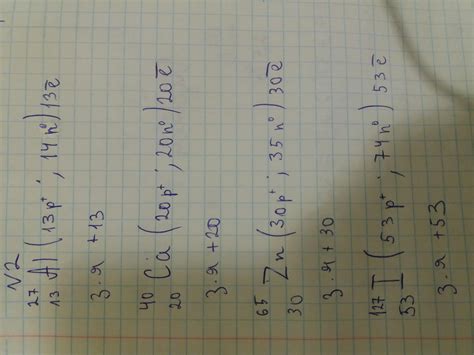 №2
²⁷₁₃Al (13p⁺; 14n⁰) 13ē
З.я +13
⁴⁰₂₀Ca (20p⁺; 20n⁰) 20ē
З.я +20
⁶⁵₃₀Zn (30p⁺; 35n⁰) 30ē
З.я +30
¹²⁷₅₃I (53p⁺; 74n⁰) 53ē
З.я +53